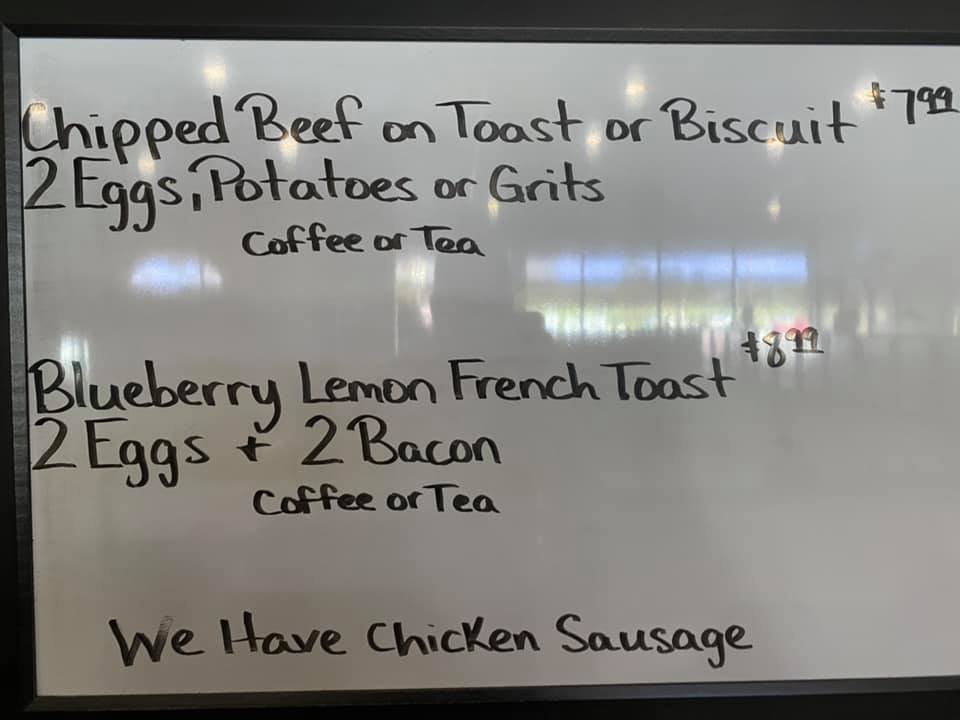 Chipped Beef on Toast or Biscuit $7.99
2 Eggs, Potatoes or Grits
Coffee or Tea
Blueberry Lemon French Toast $8.99
2 Eggs + 2 Bacon
Coffee or Tea
We Have Chicken Sausage